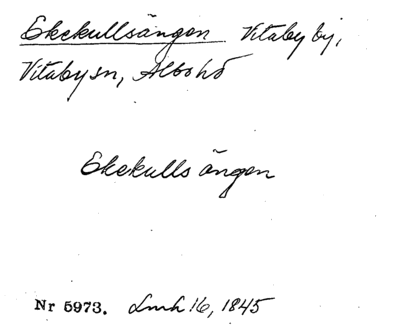 Ekekullsängen Vitaby by,
Vitaby sn, Albo hd
Ekekulls ängen
Nr 5973. Lmh 16, 1845